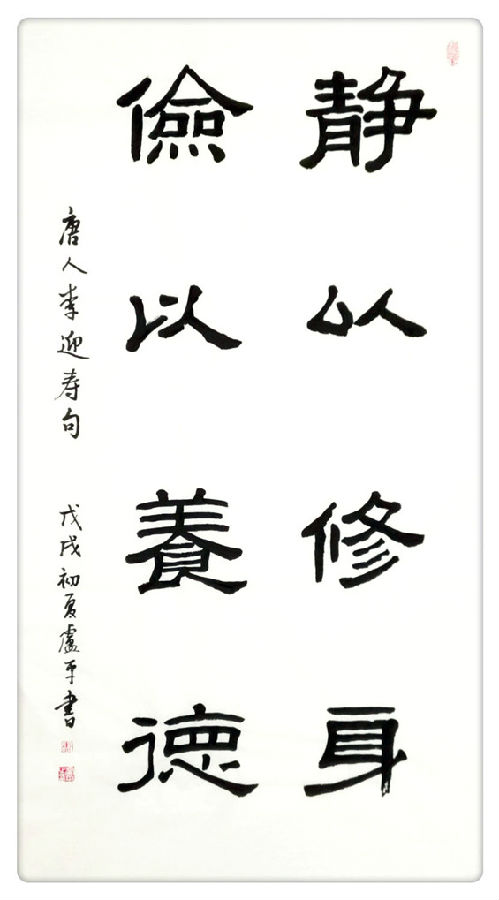 静以修身
儉以養德
唐人李迎寿句
戊戌初夏盧平書